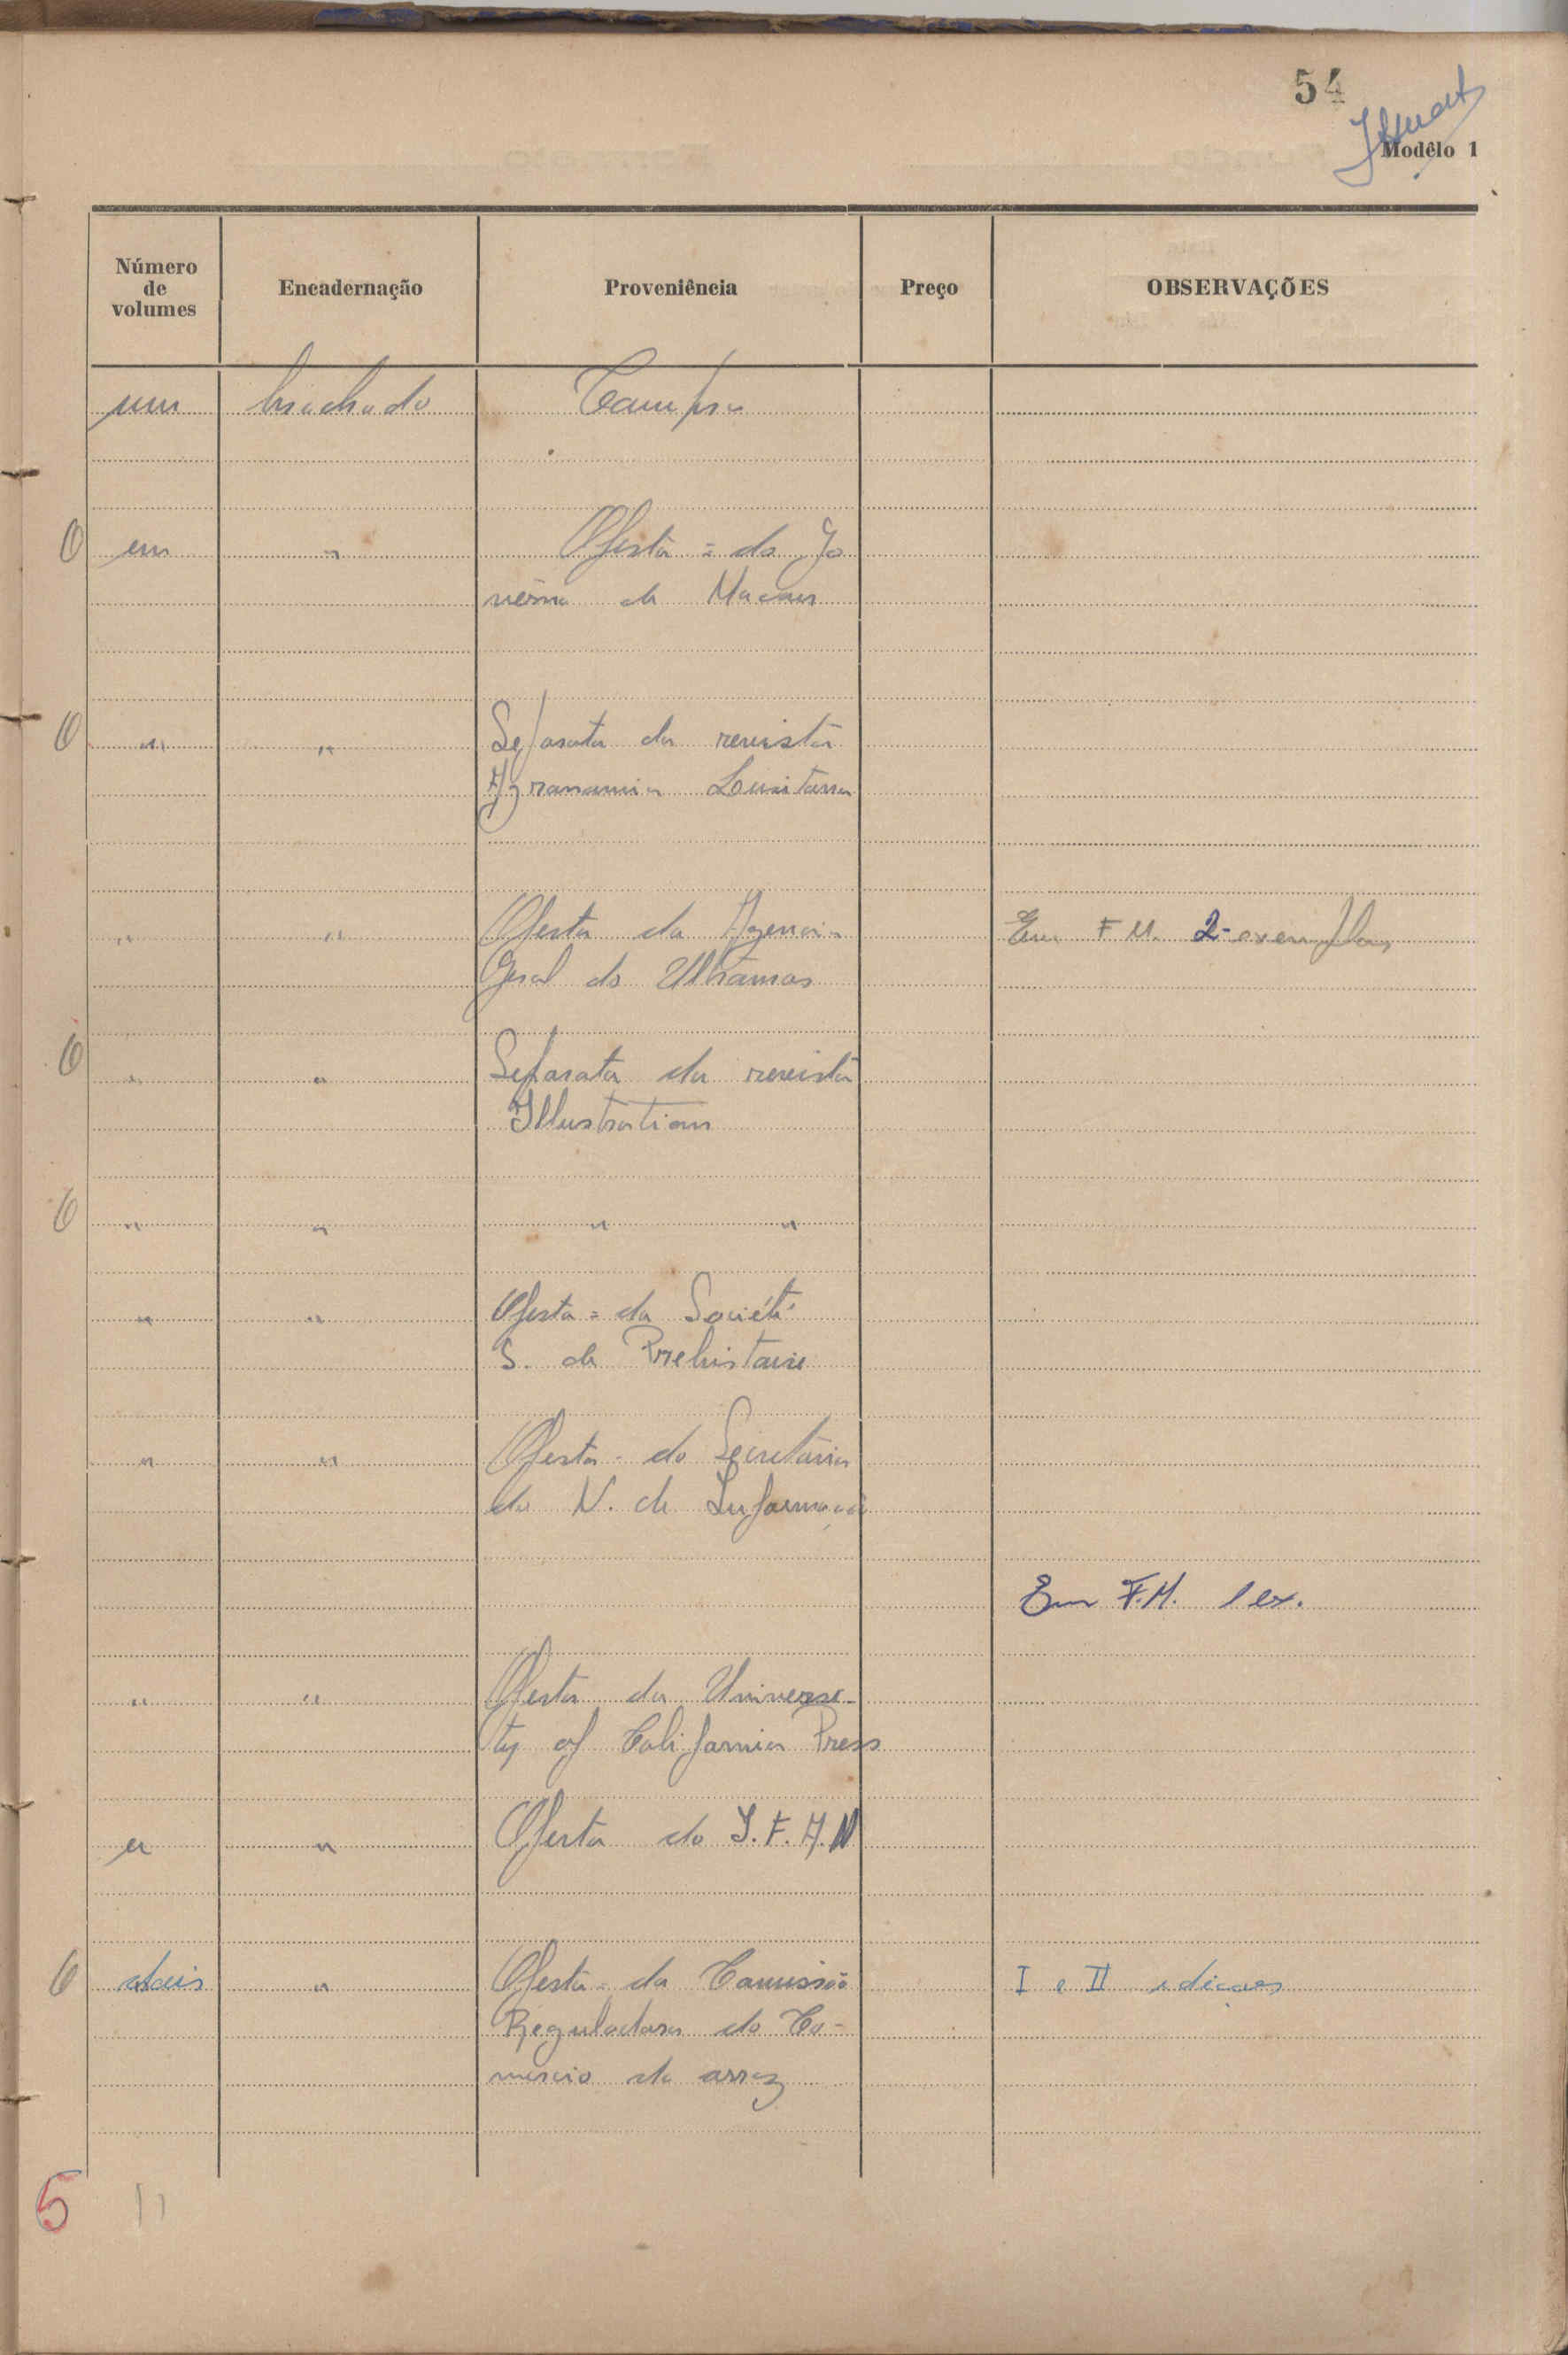 54
Modêlo 1
Número de volumes Encadernação Proveniência Preço OBSERVAÇÕES
um brochado Compra
O um " Oferta = do Go
vêrno de Macau
O " " Separata da revista
Agronomia Lusitana
" " Oferta da Agencia Em F M. 2 exemplares
Geral do Ultramar
O " " Separata da revista
Illustration
O " " " "
" " Oferta = da Société
S. de Prehistoire
" " Oferta - do Secretaria
do N. de Informação
Em F.M. 1 ex.
" " Oferta da Universi-
ty of California Press
" " Oferta do I.F.A.N
O dois " Oferta = da Comissão I e II edicoes
Reguladora do Co-
mercio de arroz
5 11